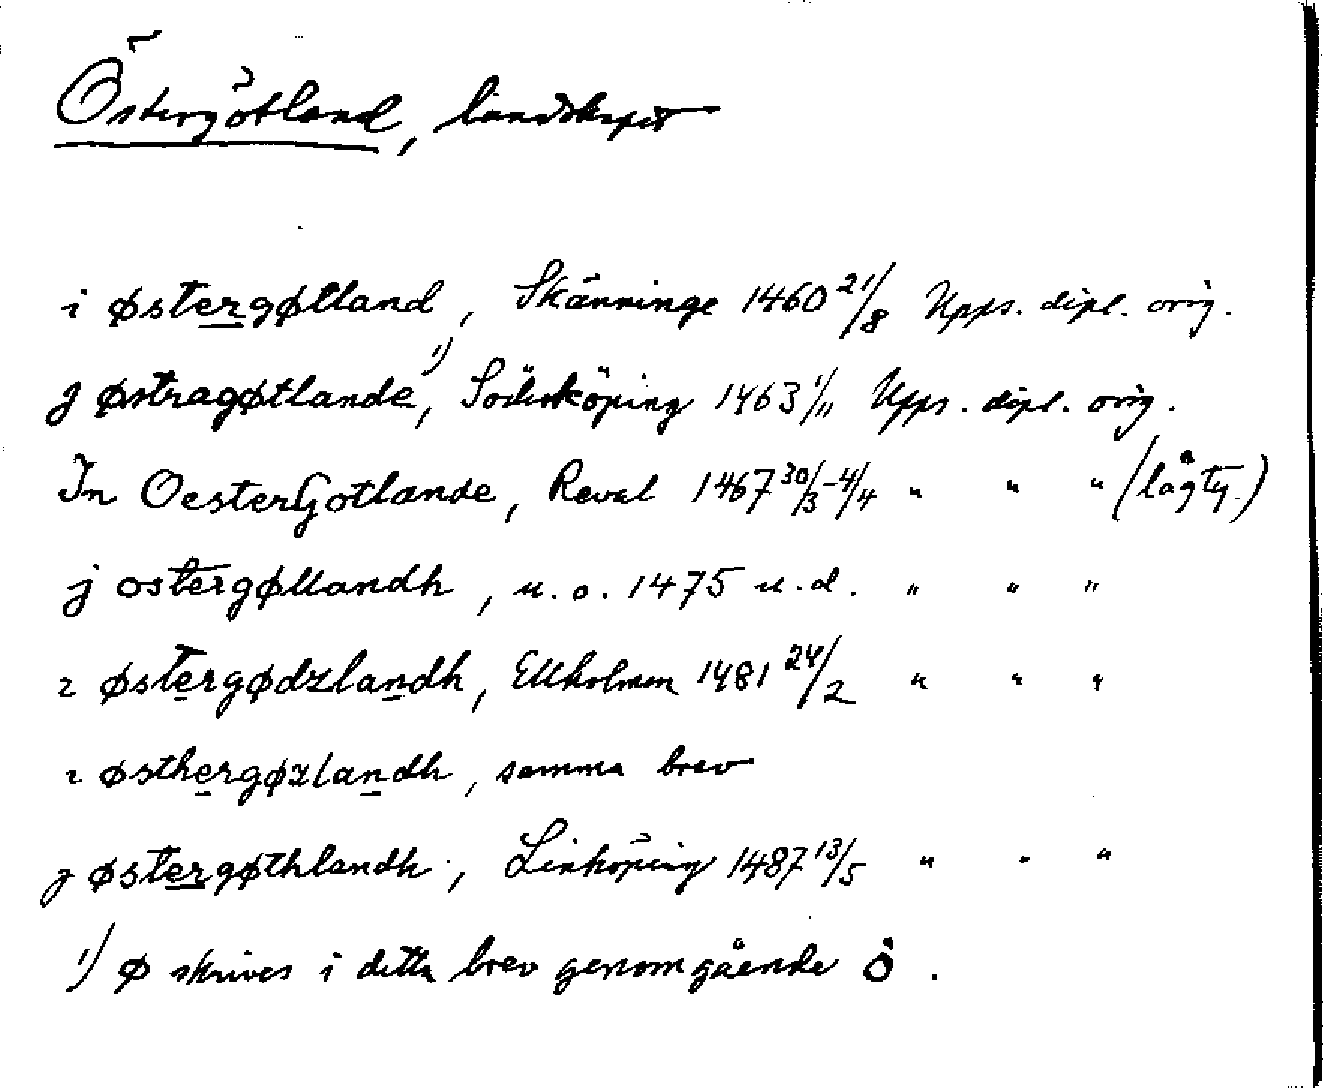 Östergötland, landskapet
i østergøtland, Skänninge 1460 21/8 Upps. dipl. orig.
j østragøtlande 1), Söderköping 1463 1/11 Upps. dipl. orig.
In OesterGotlande, Reval 1467 30/3–4/4 " " " (lågty.)
j ostergøtlandh, u.o. 1475 u.d. " " "
ı østergødzlandh, Ekholmen 1481 24/2 " " "
ı østhergøzlandh, samma brev
j østergøthlandh, Linköping 1487 13/5 " " "
1) ø skrives i detta brev genomgående ȯ.